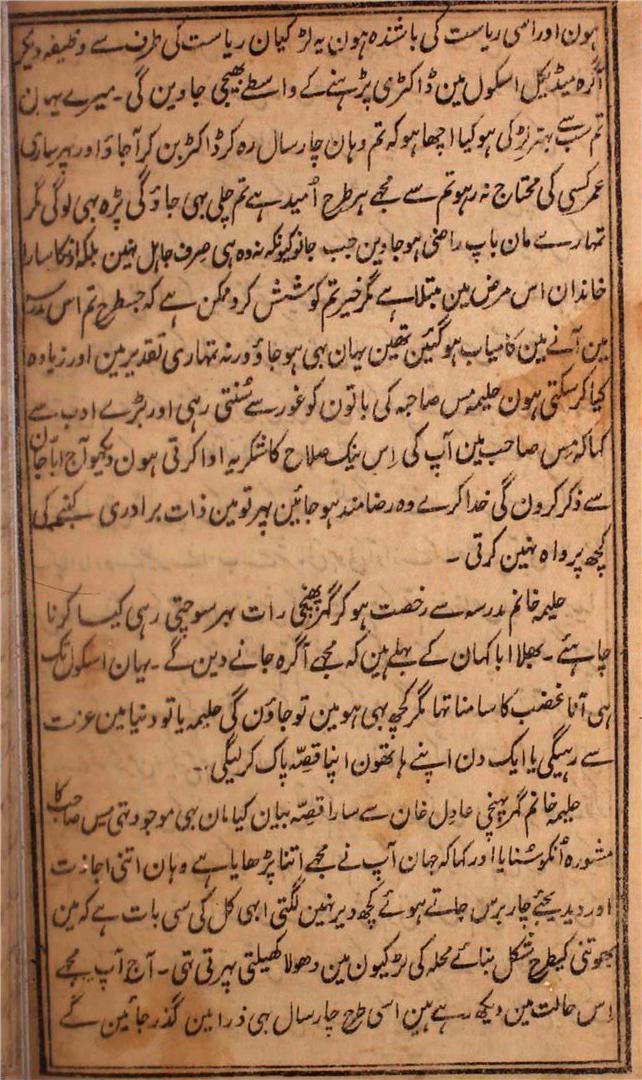 ہون اور اسی ریاست کی باشندہ ہون یہ لڑکیان ریاست کی طرف سے وظیفہ دیکر
آگرہ میڈیکل اسکول مین ڈاکٹری پڑہنے کے واسطے بھیجی جاوین گی۔ میرے یہان
تم سب سے بہتر لڑکی ہو کیا اچھا ہو کہ تم وہان چار سال رہ کر ڈاکٹر بن کر آجاؤ اور پہر ساری
عمر کسی کی محتاج نہ رہو تم سے مجھے ہر طرح اُمید ہے تم چلی بہی جاؤ گی پڑہ بہی لوگی مگر
تمہارے مان باپ راضی ہو جاوین جب جانو کیونکہ نہ وہ ہی صرف جاہل نہین بلکہ اونکا سارا
خاندان اس مرض مین مبتلا ہے مگر خیر تم کوشش کرو ممکن ہے کہ جسطرح تم اس مدرسہ
مین آنے مین کامیاب ہو گئین تھین یہان بہی ہو جاؤ ورنہ تمہاری تقدیر مین اور زیادہ
کیا کر سکتی ہون حلیمہ مس صاحبہ کی باتون کو غور سے سُنتی رہی اور بڑے ادب سے
کہا کہ مس صاحب مین آپ کی اِس نیک صلاح کا شکریہ ادا کرتی ہون دیکہو آج ابا جان
سے ذکر کرون گی خدا کرے وہ رضامند ہو جائین پہر تو مین ذات برادری کنبے کی
کچھ پرواہ نہین کرتی ۔
حلیمہ خانم مدرسہ سے رخصت ہو کر گھر پہنچی رات بہر سوچتی رہی کیسا کرنا
چاہئے ۔ بھلا ابا کہان کے پہلے ہین کہ مجھے آگرہ جانے دین گے ۔ یہان اسکول تک
ہی آنا غضب کا سامنا تہا مگر کچھ بہی ہو مین تو جاؤن گی حلیمہ یا تو دنیا مین عزت
سے رہیگی یا ایک دن اپنے ہاتھون اپنا قصّہ پاک کر لیگی ۔
حلیمہ خانم گھر پہنچی عادل خان سے سارا قصّہ بیان کیا مان بہی موجود تہی مس صاحب کا
مشورہ اُنکو سُنایا اور کہا کہ جہان آپ نے مجھے اتنا پڑھایا ہے وہان اتنی اجازت
اور دیدیجئے چار برس جاتے ہوئے کچھ دیر نہین لگتی ابہی کل کی سی بات ہے کہ مین
بھوتنی کیطرح شکل بنائے محلہ کی لڑکیون مین دھولا کھیلتی پہرتی تہی ۔ آج آپ مجھے
اِس حالت مین دیکھ رہے ہین اسی طرح چار سال بہی ذرا مین گذر جائین گے